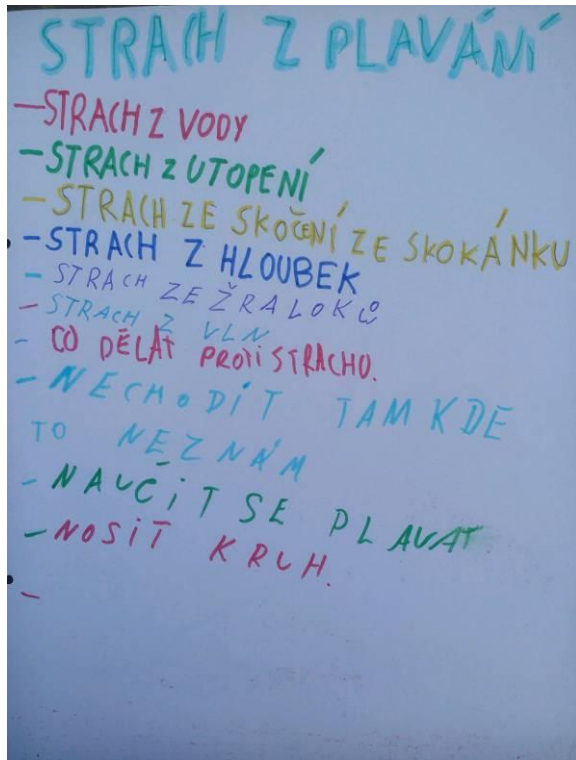 STRACH Z PLAVÁNÍ
-STRACH Z VODY
-STRACH Z UTOPENÍ
-STRACH ZE SKOČENÍ ZE SKOKÁNKU
-STRACH Z HLOUBEK
- STRACH ZE ŽRALOKŮ
- STRACH Z VLN
- CO DĚLAT PROTI STRACHU.
- NECHODIT TAM KDE
TO NEZNÁM
- NAUČIT SE PLAVAT
- NOSIT KRUH.
-